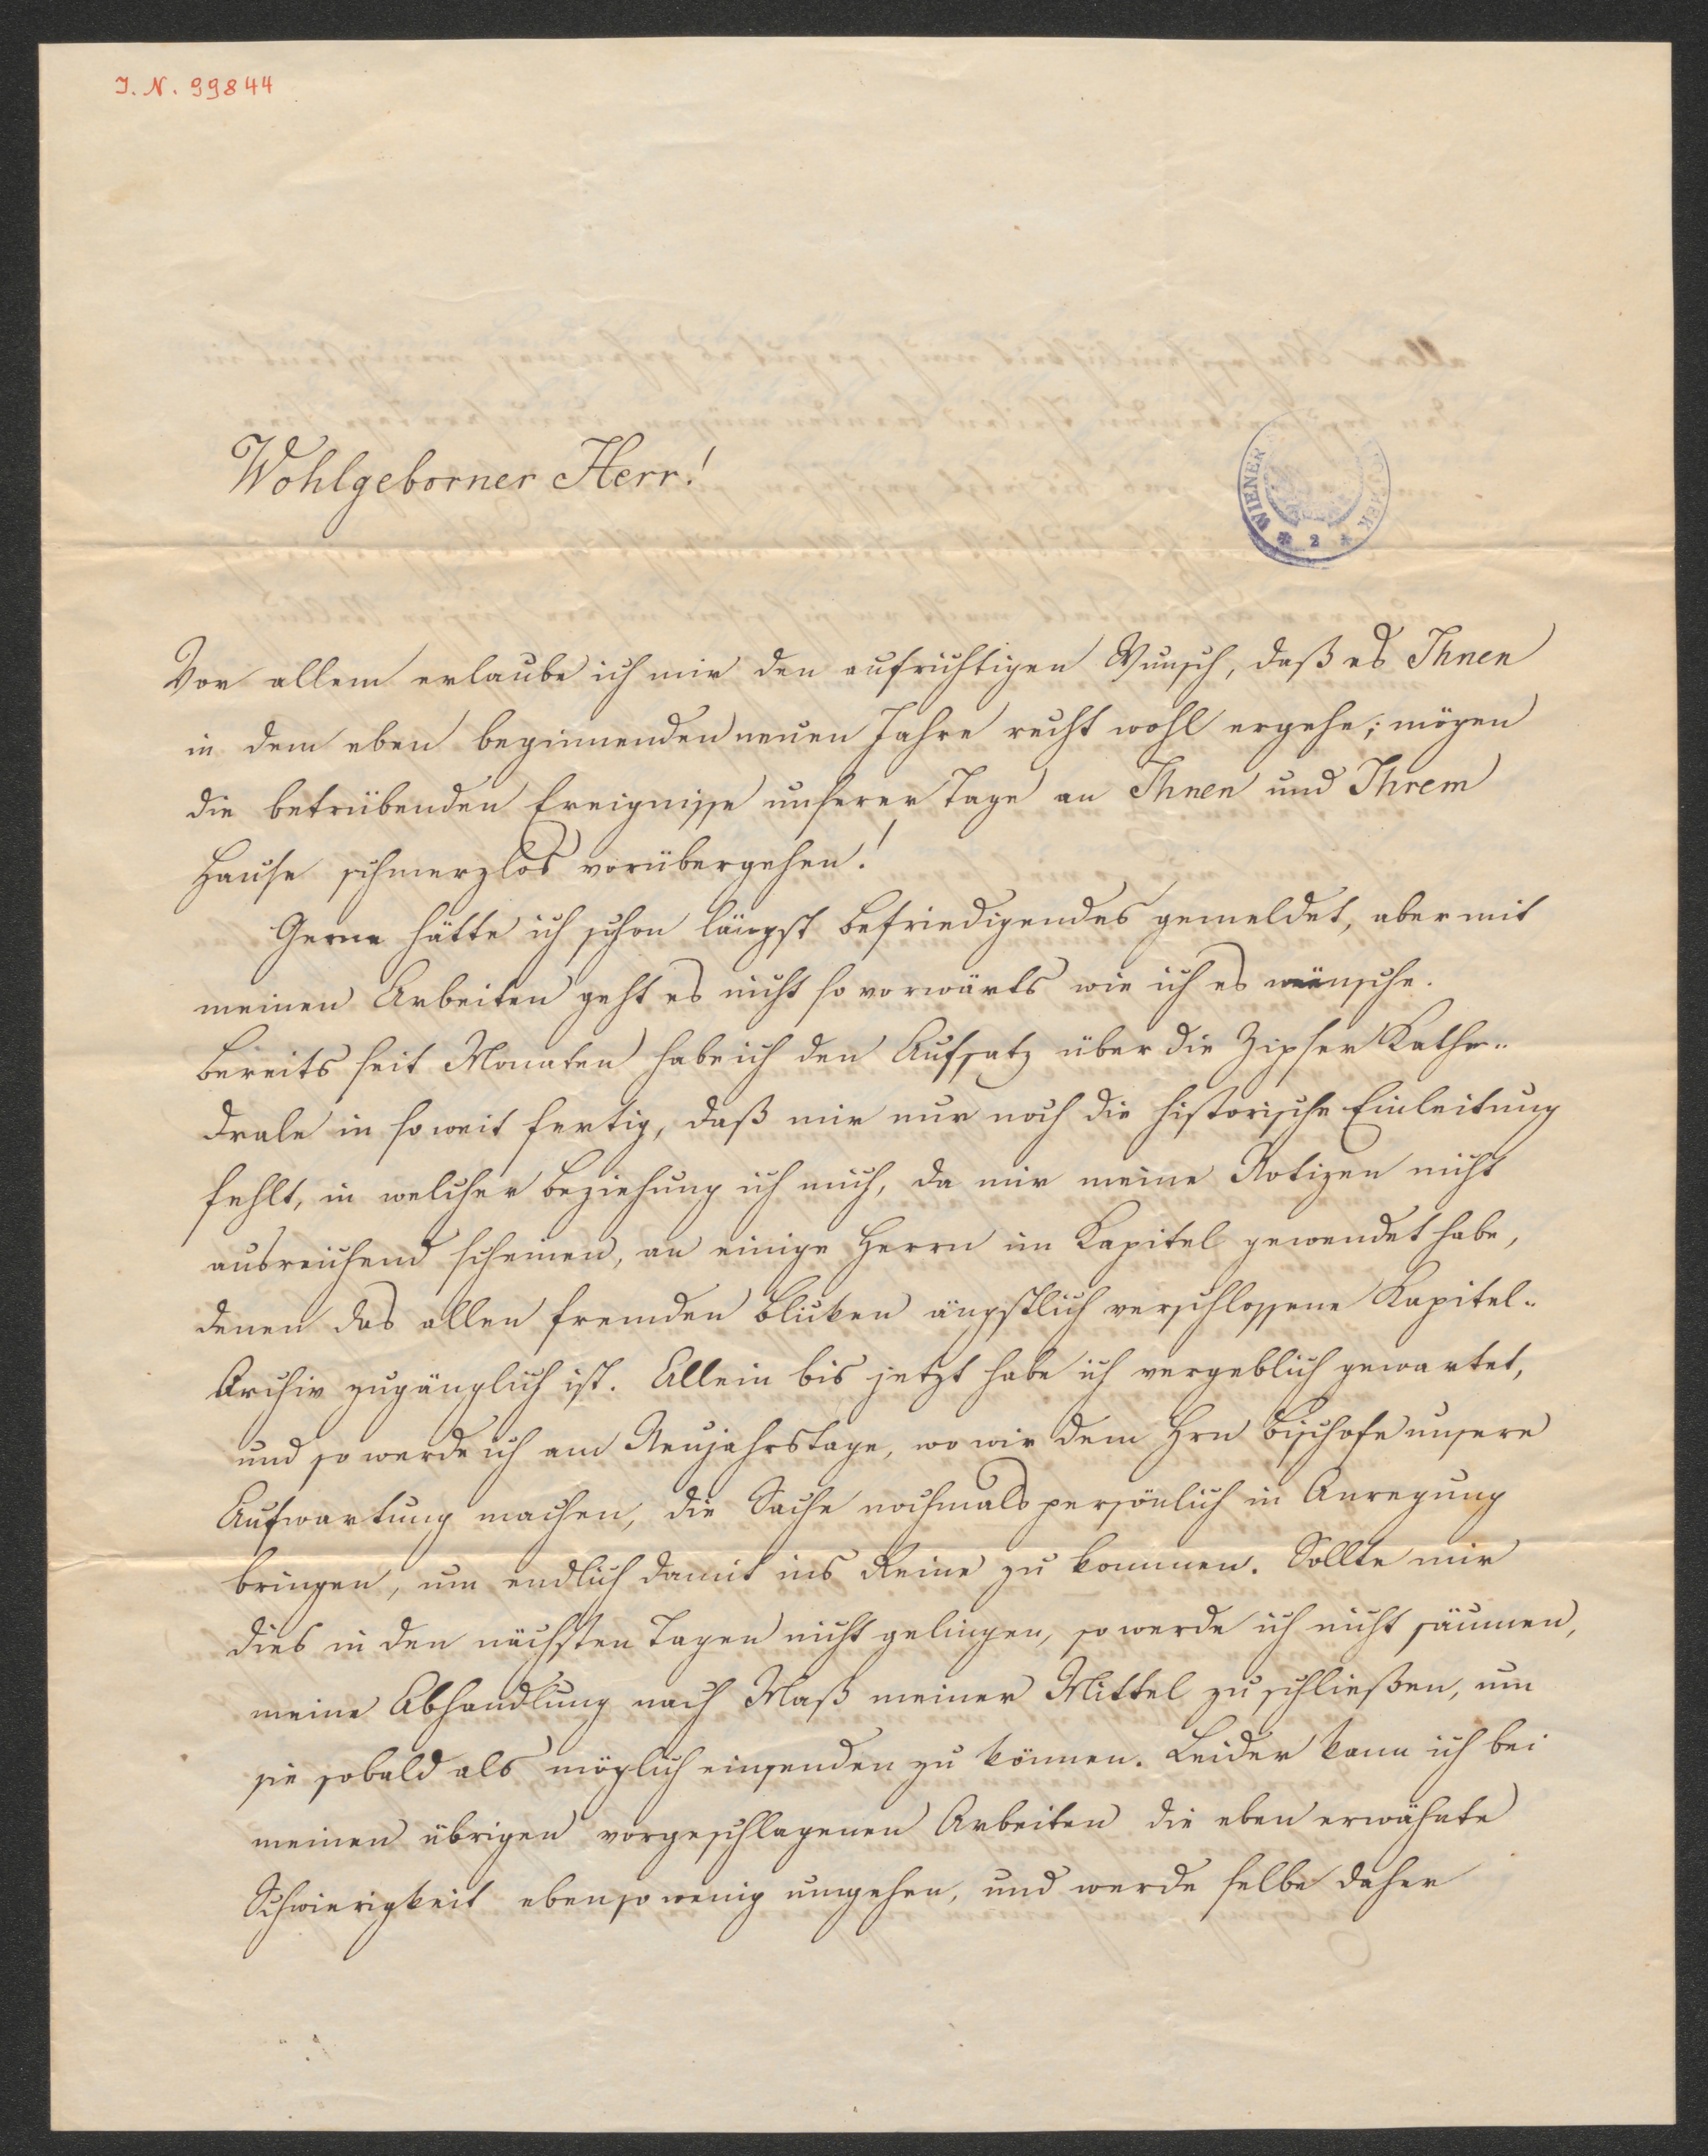 I. N. 99844
Wohlgeborner Herr!
WIENER
* 2 *
Vor allem erlaube ich mir den aufrichtigen Wunsch, daß es Ihnen
in dem eben beginnenden neuen Jahre recht wohl ergehe; mögen
die betrübenden Ereignisse unserer Tage an Ihnen und Ihrem
Hause schmerzlos vorübergehen!
Gerne hätte ich schon längst Befriedigendes gemeldet, aber mit
meinen Arbeiten geht es nicht so vorwärts wie ich es wünsche.
Bereits seit Monaten habe ich den Aufsatz über die Zipser Kathe-
drale in soweit fertig, daß mir nur noch die historische Einleitung
fehlt, in welcher Beziehung ich mich, da mir meine Notizen nicht
ausreichend scheinen, an einige Herrn im Kapitel gewendet habe,
denen das allen fremden Blicken ängstlich verschlossene Kapitel-
Archiv zugänglich ist. Allein bis jetzt habe ich vergeblich gewartet,
und so werde ich am Neujahrstage, wo wir dem Hrn Bischofe unsere
Aufwartung machen, die Sache nochmals persönlich in Anregung
bringen, um endlich damit ins Reine zu kommen. Sollte mir
dies in den nächsten Tagen nicht gelingen, so werde ich nicht säumen,
meine Abhandlung nach Maß meiner Mittel zu schließen, um
sie sobald als möglich einsenden zu können. Leider kann ich bei
meinen übrigen vorgeschlagenen Arbeiten die eben erwähnte
Schwierigkeit ebenso wenig umgehen, und werde selbe daher